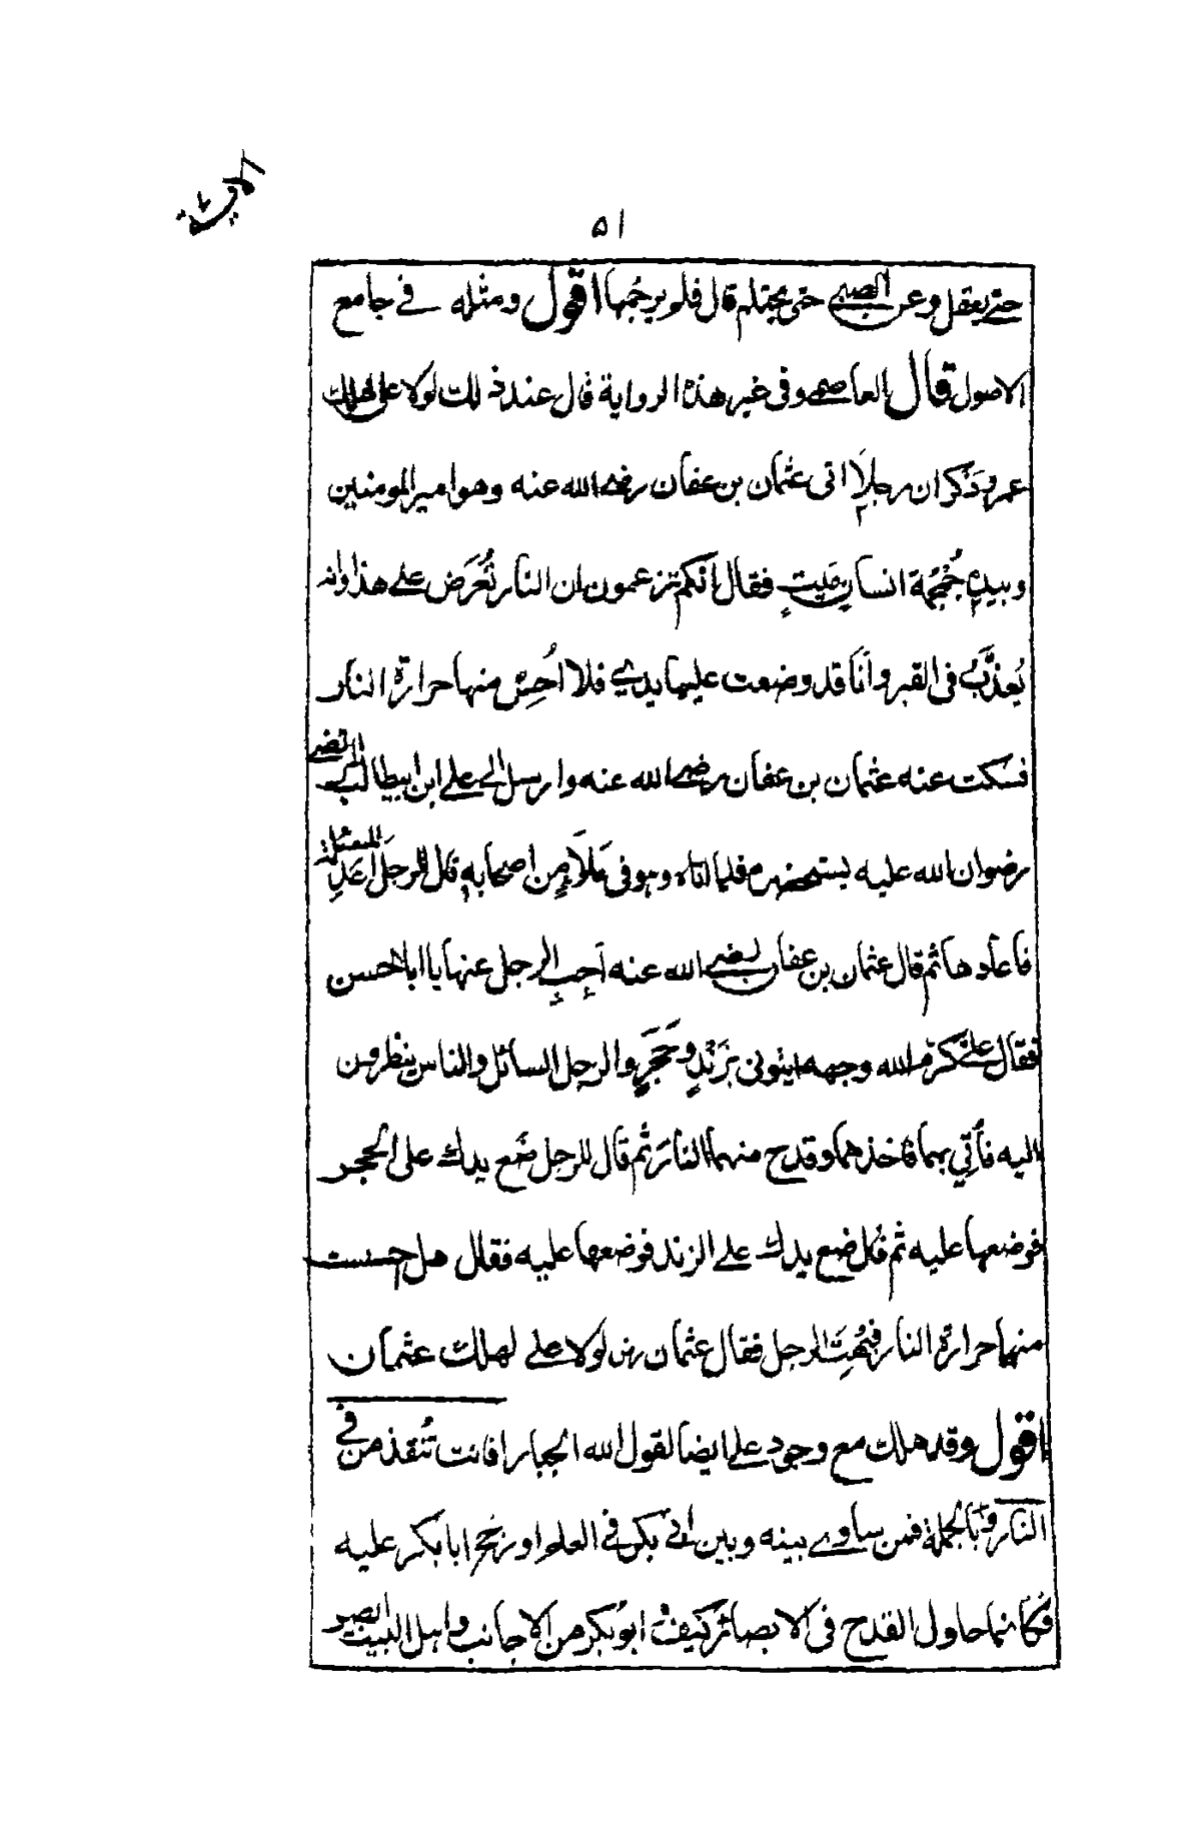 ۵۱
حتے يعقل وعن الصبي حتى يحتلم قال فلم يرجمها اقول ومثله في جامع
الاصول قال العاصمي وفى غير هذه الرواية قال عند ذلك لولا علي لهلك
عمر وذكر ان رجلاً اتى عثمان بن عفان رضے الله عنه وهو امير المومنين
وبيده جُمْجُمَة انسان ميتٍ فقال انكم تزعمون ان النار تُعرَض علے هذا وانه
يُعذَّبُ فى القبر وأنا قد وضعت عليها يدي فلا اُحِسّ منها حرارة النار
فسكت عنه عثمان بن عفان رضے الله عنه وارسل الے علے ابن ابيطالب المرتضے
رضوان الله عليه يستحضره فلما اتاه وهو فى مَلَأٍ مِن اصحابهِ قال للرجل اَعِدِ المسئلة
فاعادها ثم قال عثمان بن عفان رضے الله عنه اَجِبِ الرجل عنها يا ابا الحسن
فقال علي كرّم الله وجهه ايتونى بزَنْدٍ وحَجَرٍ والرجل السائل والناس ينظرون
اليه فأتِي بهما فاخذهما وقدح منهما النارَ ثم قال للرجل ضَع يدك على الحجر
فوضعها عليه ثم قال ضع يدك علے الزند فوضعها عليه فقال هل احسست
منها حرارة النار فبُهِتَ الرجل فقال عثمان رض لولا علے لهلك عثمان
اقول وقد هلك مع وجود علے ايضا لقول الله الجبار افانت تُنقذ من في
النار وبالجملة فمن ساوے بينه وبين ابي بكر في العلم او رجح ابا بكر عليه
فكانما حاول القدح فى الابصائر كيف ابوبكر من الاجانب واهل البيت ابصر